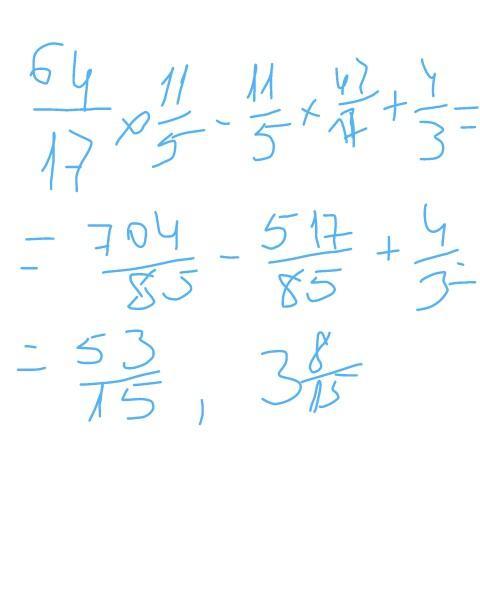 64/17 × 11/5 - 11/5 × 47/17 + 4/3 =
= 704/85 - 517/85 + 4/3 =
= 53/15, 3 8/15